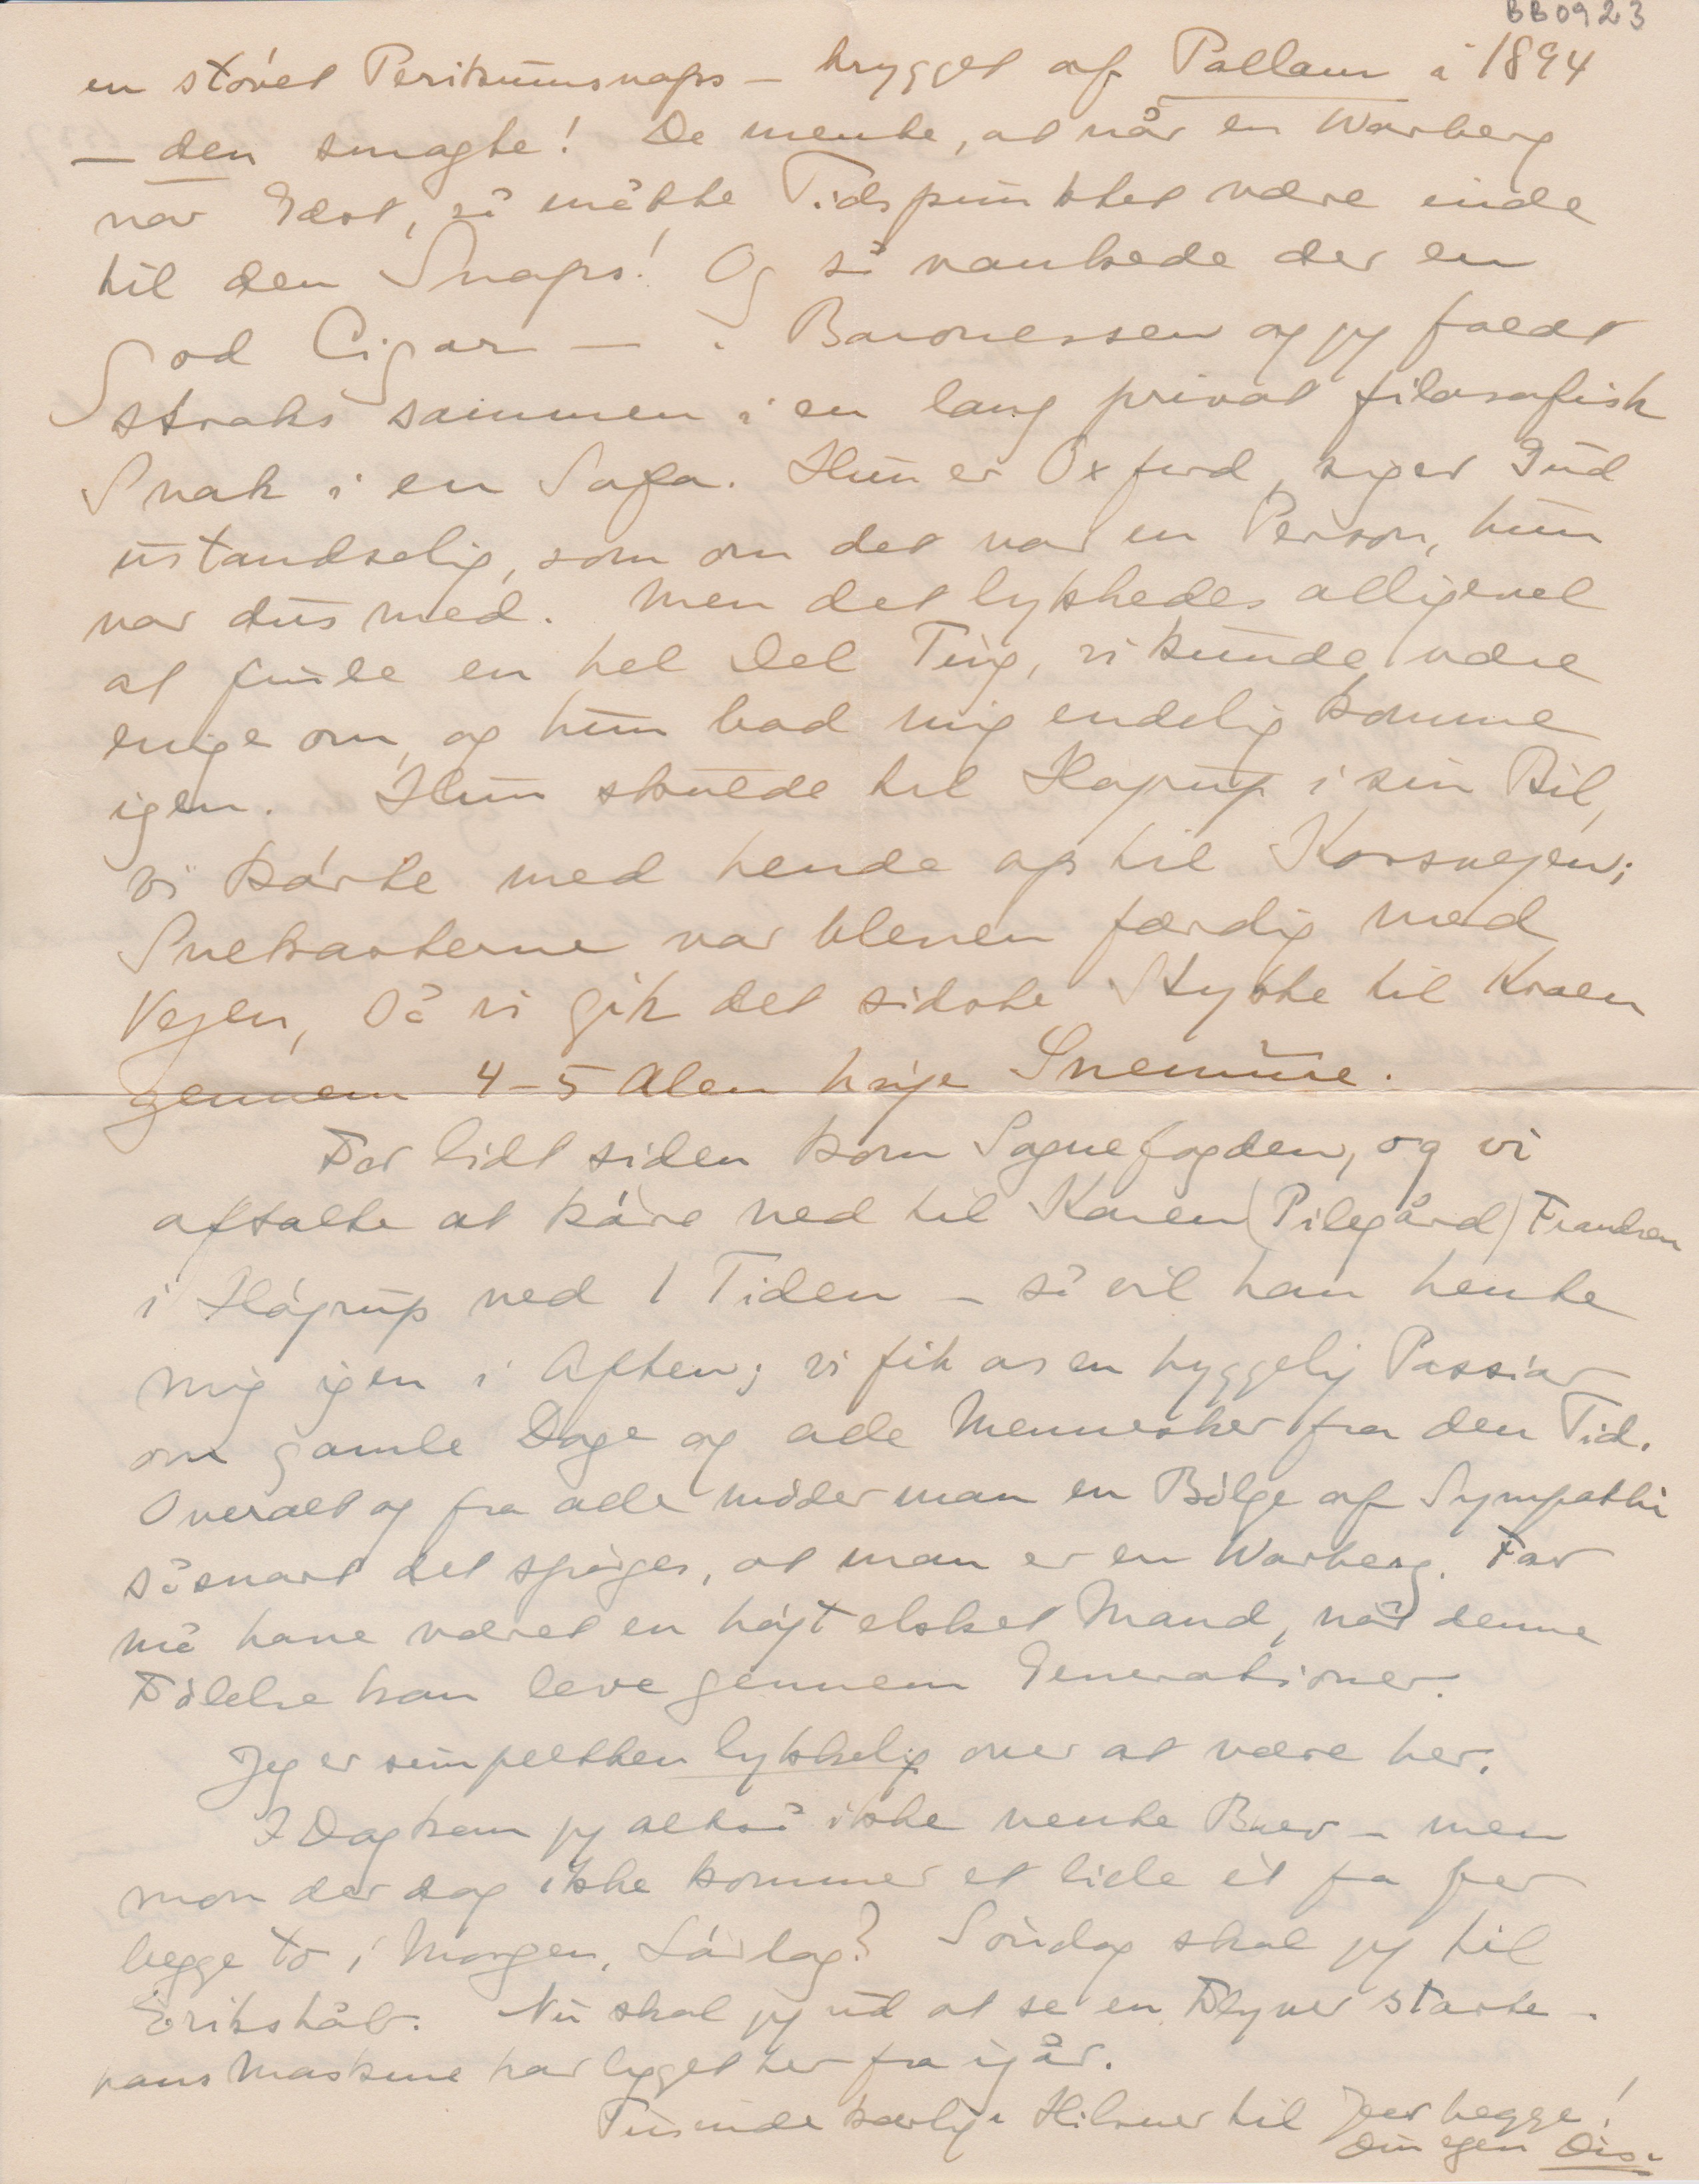 BB0923
en støvet Perikumsnaps – brygget af Pallam i 1894
– den smagte! De mente, at når en Warberg
var Gæst, så måtte Tidspunktet være inde
til den Snaps! Og så vankede der en
God Cigar – . Baronessen og jeg faldt
straks sammen i en lang privat filosofisk
Snak i en Sofa. Hun er Oxford, siger Gud
ustandselig, som om det var en Person, hun
var dus med. Men det lykkedes alligevel
at finde en hel Del Ting, vi kunde være
enige om, og hun bad mig endelig komme
igen. Hun skulde til Højrup i sin Bil,
vi kørte med hende op til Korsvejen;
Snekasterne var bleven færdig med
Vejen, så vi gik det sidste Stykke til Kroen
gennem 4-5 Alen høje Snemure.
For lidt siden kom Sognefogden, og vi
aftalte at køre ned til Karen (Pilegård) Frandsen
i Højrup ved 1 Tiden – så vil han hente
mig igen i Aften; vi fik os en hyggelig Passiar
om gamle Dage og alle Mennesker fra den Tid.
Overalt og fra alle møder man en Bølge af Sympathi
såsnart det spørges, at man er en Warberg. Far
må have været en højt elsket Mand, når denne
Følelse kan leve gennem Generationer.
Jeg er simpelthen lykkelig over at være her.
I Dag kan jeg altså ikke vente Brev – men
mon der dog ikke kommer et lille et fra jer
begge to i Morgen, Lørdag? Søndag skal jeg til
Erikshåb. Nu skal jeg ud at se en Flyver starte –
hans Maskine har ligget her fra igår.
Tusinde kærlige Hilsner til Jer begge!
Din egen Dis.